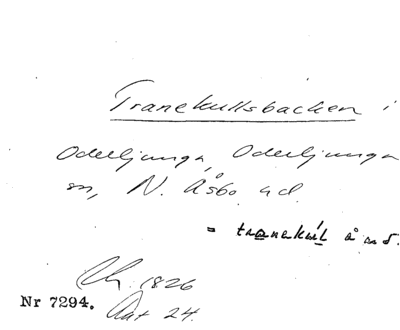 Tranekullsbacken i
Oderljunga, Oderljunga
sn, N. Åsbo hd.
= tranekul å nö.
Ch. 1826
Nr 7294. Akt 24.